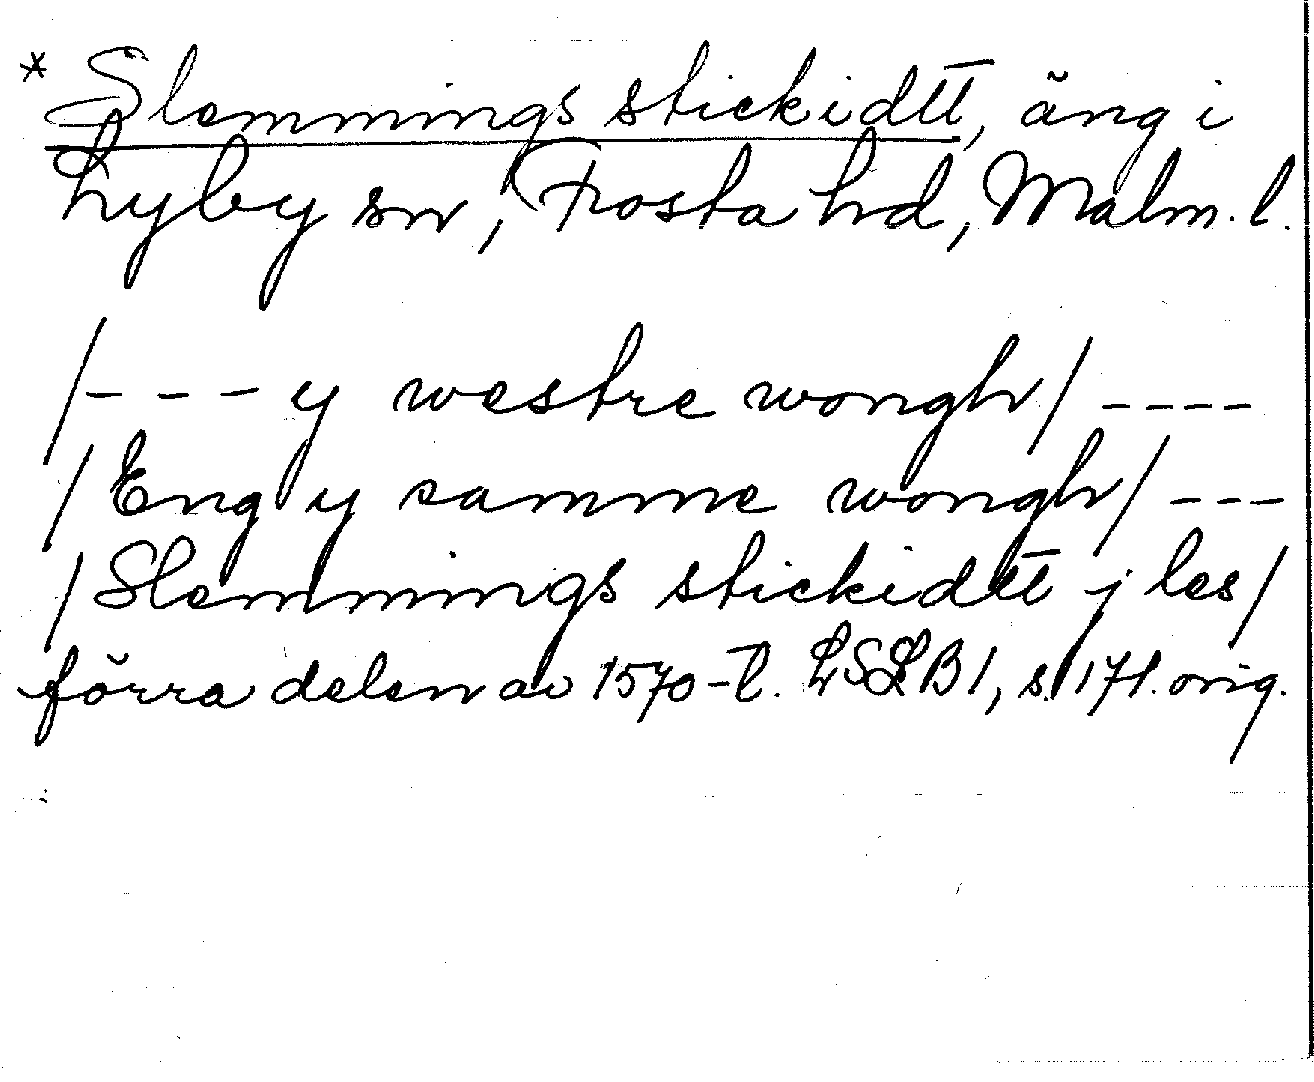 * Slemmings stickidtt, äng i
Lyby sn, Frosta hd, Malm. l.
/- - - y westre wongh/ - - - -
/Eng y samme wongh/ - - -
/Slemmings stickidtt j les/
förra delen av 1570-t. LSLB 1, s. 171. orig.